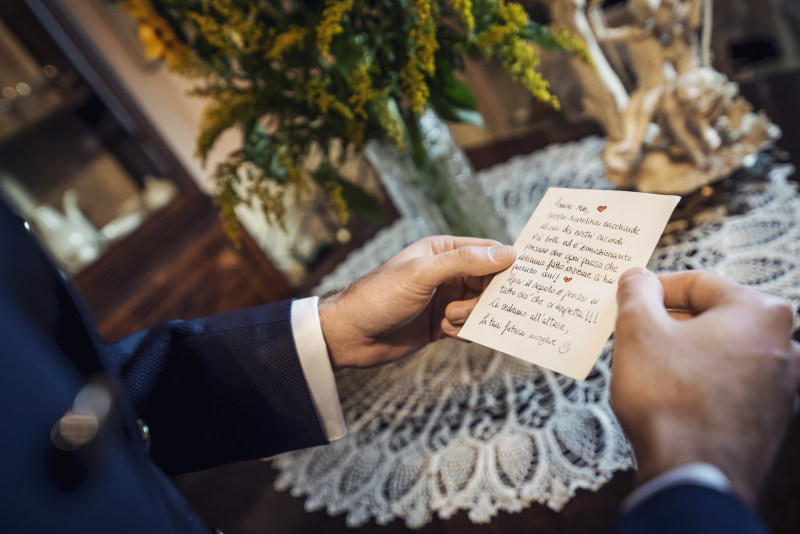 Amore mio, ♥
questa scatolina racchiude
alcuni dei nostri ricordi
più belli ed è emozionante
pensare che ogni passo che
abbiamo fatto insieme ci ha
portato qui! ♥
Apri il regalo e pensa a
tutto ciò che ci aspetta!!!
Ci vediamo all'altare,
la tua futura moglie